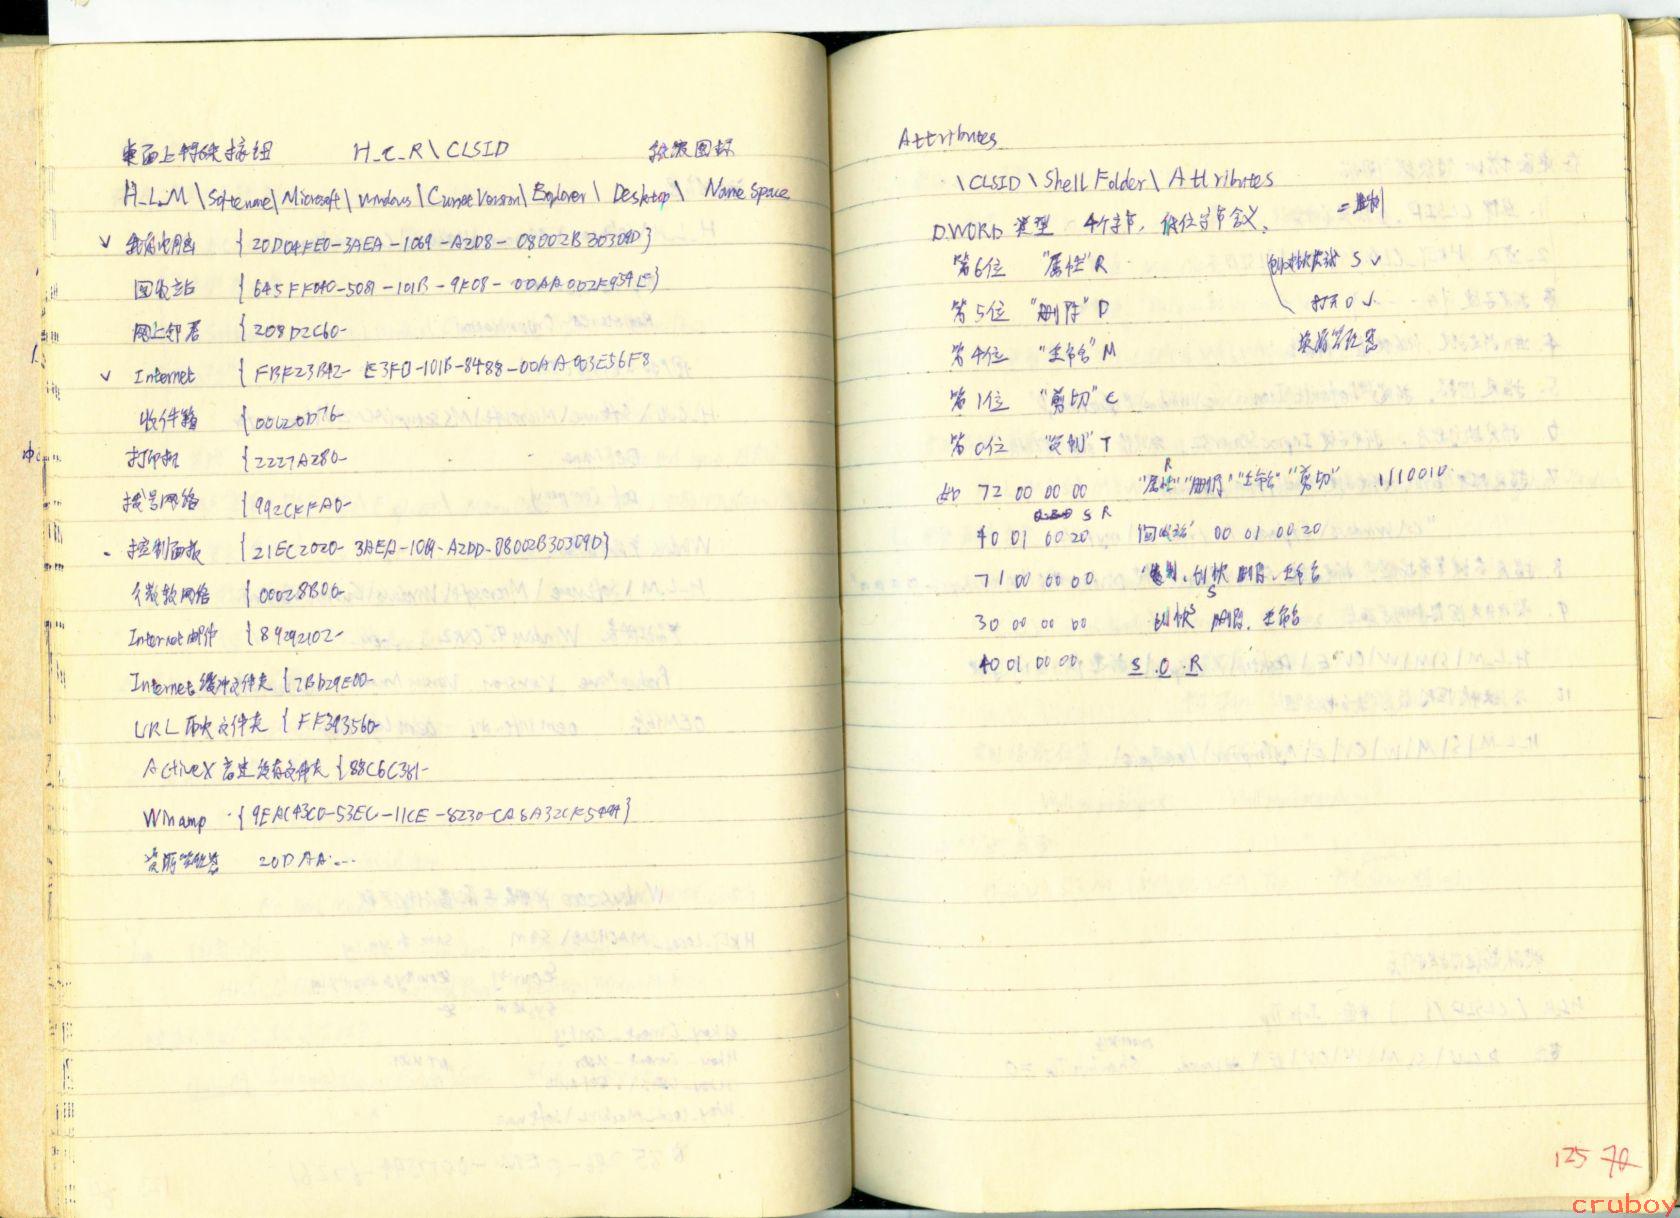 桌面上特殊按钮 H_C_R\CLSID 图标
H_L_M\Software\Microsoft\Windows\CurrentVersion\Explorer\Desktop\NameSpace
√ 我的电脑 {20D04FE0-3AEA-1069-A2D8-08002B30309D}
回收站 {645FF040-5081-101B-9F08-00AA002F954E}
网上邻居 {208D2C60-
√ Internet {FBF23B42-E3F0-101B-8488-00AA003E56F8
收件箱 {00020D76-
打印机 {2227A280-
拨号网络 {992CFFA0-
控制面板 {21EC2020-3AEA-1069-A2DD-08002B30309D}
{00028B00-
Internet邮件 {89292102-
Internet缓冲文件夹 {7BD29E00-
URL历史文件夹 {FF393560-
ActiveX高速缓存文件夹 {88C6C381-
Winamp {9EAC43C0-53EC-11CE-8230-CA8A32CF5494}
资源管理器 20DAA...
Attributes
\CLSID\Shell Folder\Attributes
DWORD 类型 4个字节, 低位字节含义, 二进制
第6位 "属性" R 创快 S √
第5位 "删除" D 打开 O √
第4位 "重命名" M 资源管理器
第1位 "剪切" C
第0位 "复制" T
R
如 72 00 00 00 "属性" "删除" "重命名" "剪切" 1110010
S R
40 01 00 20 回收站 00 01 00 20
71 00 00 00 复制、创快、删除、重命名
S
30 00 00 00 创快 删除、重命名
40 01 00 00 S.O.R
125 70
cruboy